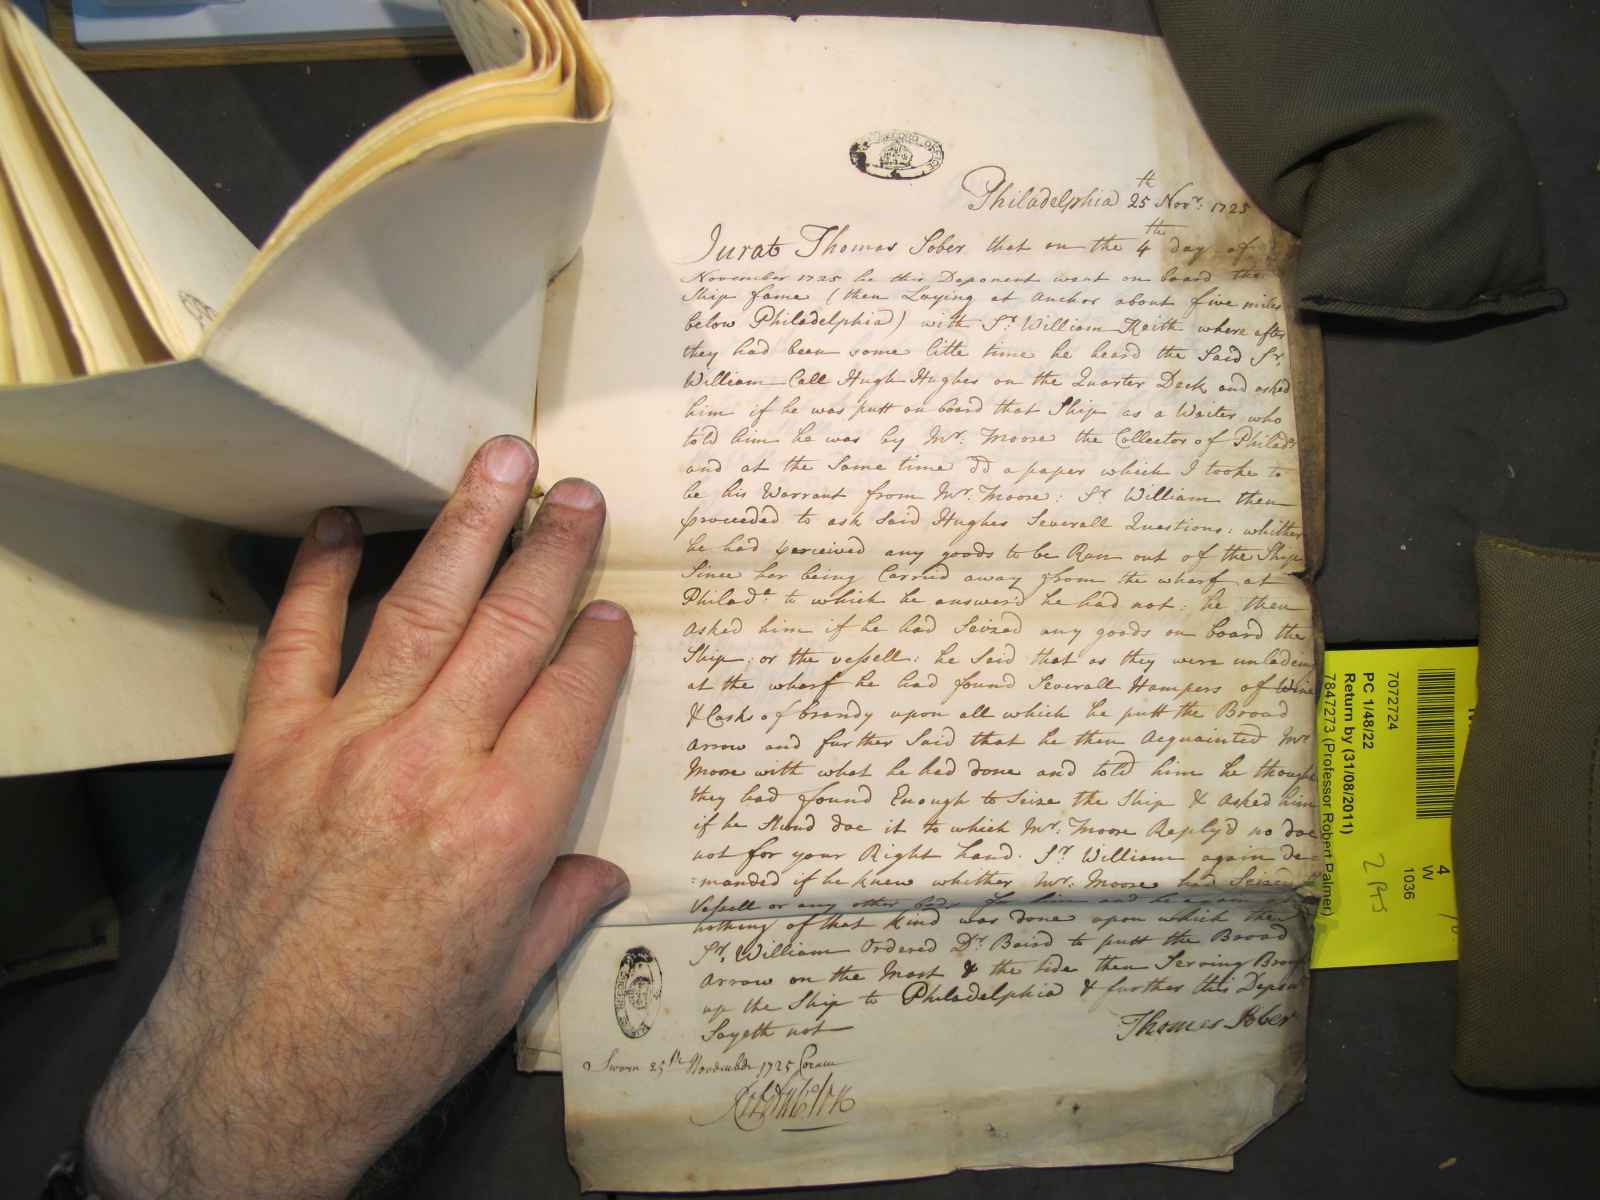 Philadelphia 25th Novr: 1725
Jurat Thomas Sober that on the 4th day of
November 1725 he this Deponent went on board the
Ship fame (then Laying at Anchor about five miles
below Philadelphia) with Sr. William Keith where after
they had been some little time he heard the Said Sr.
William Call Hugh Hughes on the Quarter Deck and asked
him if he was putt on board that Ship as a Waiter who
told him he was by Mr: Moore the Collector of Philada:
and at the Same time dd a paper which I tooke to
be his Warrant from Mr: Moore: Sr William then
proceeded to ask Said Hughes Severall Questions: whither
he had perceived any goods to be Ran out of the Ship
Since her being Carried away from the wharf at
Philada: to which he answerd he had not: he then
asked him if he had Seized any goods on board the
Ship: or the vessell: he Said that as they were unladeing
at the wharf he had found Severall Hampers of Wine
& Cask of brandy upon all which he putt the Broad
arrow and further Said that he then Acquainted Mr
Moore with what he had done and told him he thought
they had found Enough to Seize the Ship & Asked him
if he Shoud doe it to which Mr: Moore Reply'd no doe
not for your Right hand. Sr William again de=
=manded if he knew whither Mr: Moore had Seized
Vessell or any other body for him and he again
nothing of that kind was done upon which the
Sr. William Ordered Dr. Baird to putt the Broad
Arrow on the Mast & the Side then Serving
up the Ship to Philadelphia & further this
Sayeth not
Thomas Sober
Sworn 25th November 1725 Coram
RECORD OFFICE
7072724
PC 1/48/22
Return by (31/08/2011)
7847273 (Professor Robert Palmer)
4
W
1036